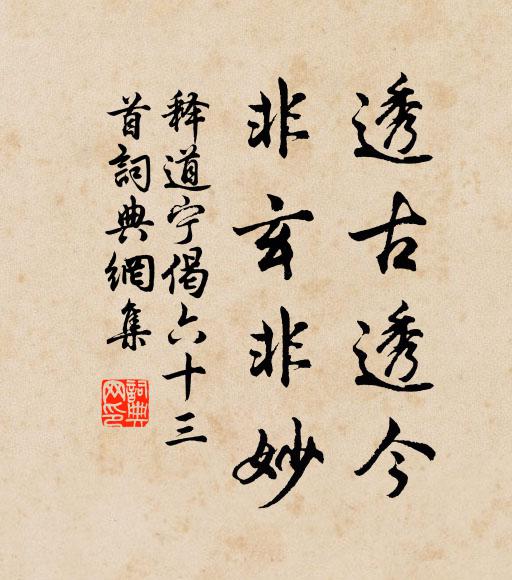 透古透今
非玄非妙
释道宁偈六十三
首詞典網集
詞典
网印